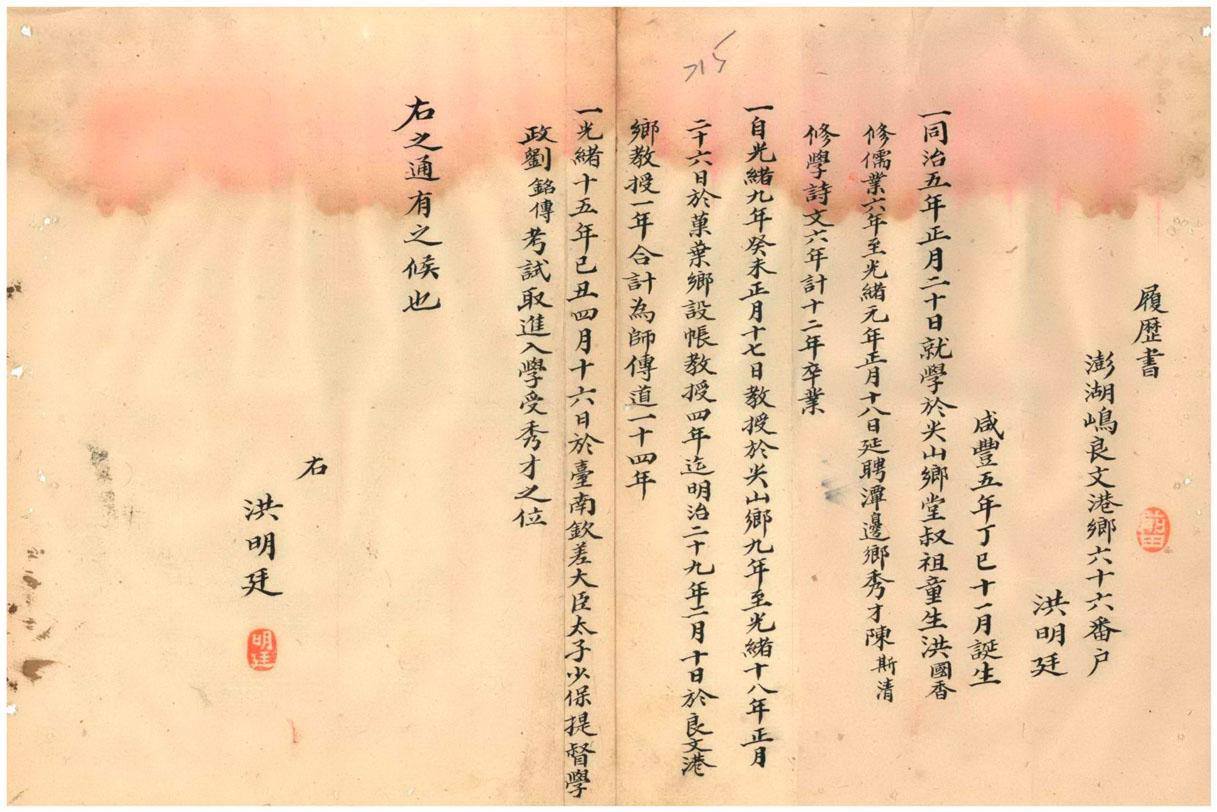 履歷書
澎湖嶋良文港鄉六十六番户
洪明廷
咸豐五年丁巳十一月誕生
一同治五年正月二十日就學於尖山鄉堂叔祖童生洪國香
修儒業六年至光緒元年正月十八日延聘潭邊鄉秀才陳斯清
修學詩文六年計十二年卒業
一自光緒九年癸未正月十七日教授於尖山鄉九年至光緒十八年正月
二十六日於菓葉鄉設帳教授四年迄明治二十九年二月十日於良文港
鄉教授一年合計為師傳道一十四年
一光緒十五年己丑四月十六日於臺南欽差大臣太子少保提督學
政劉銘傳考試取進入學受秀才之位
右之通有之候也
右
洪明廷
明廷
715